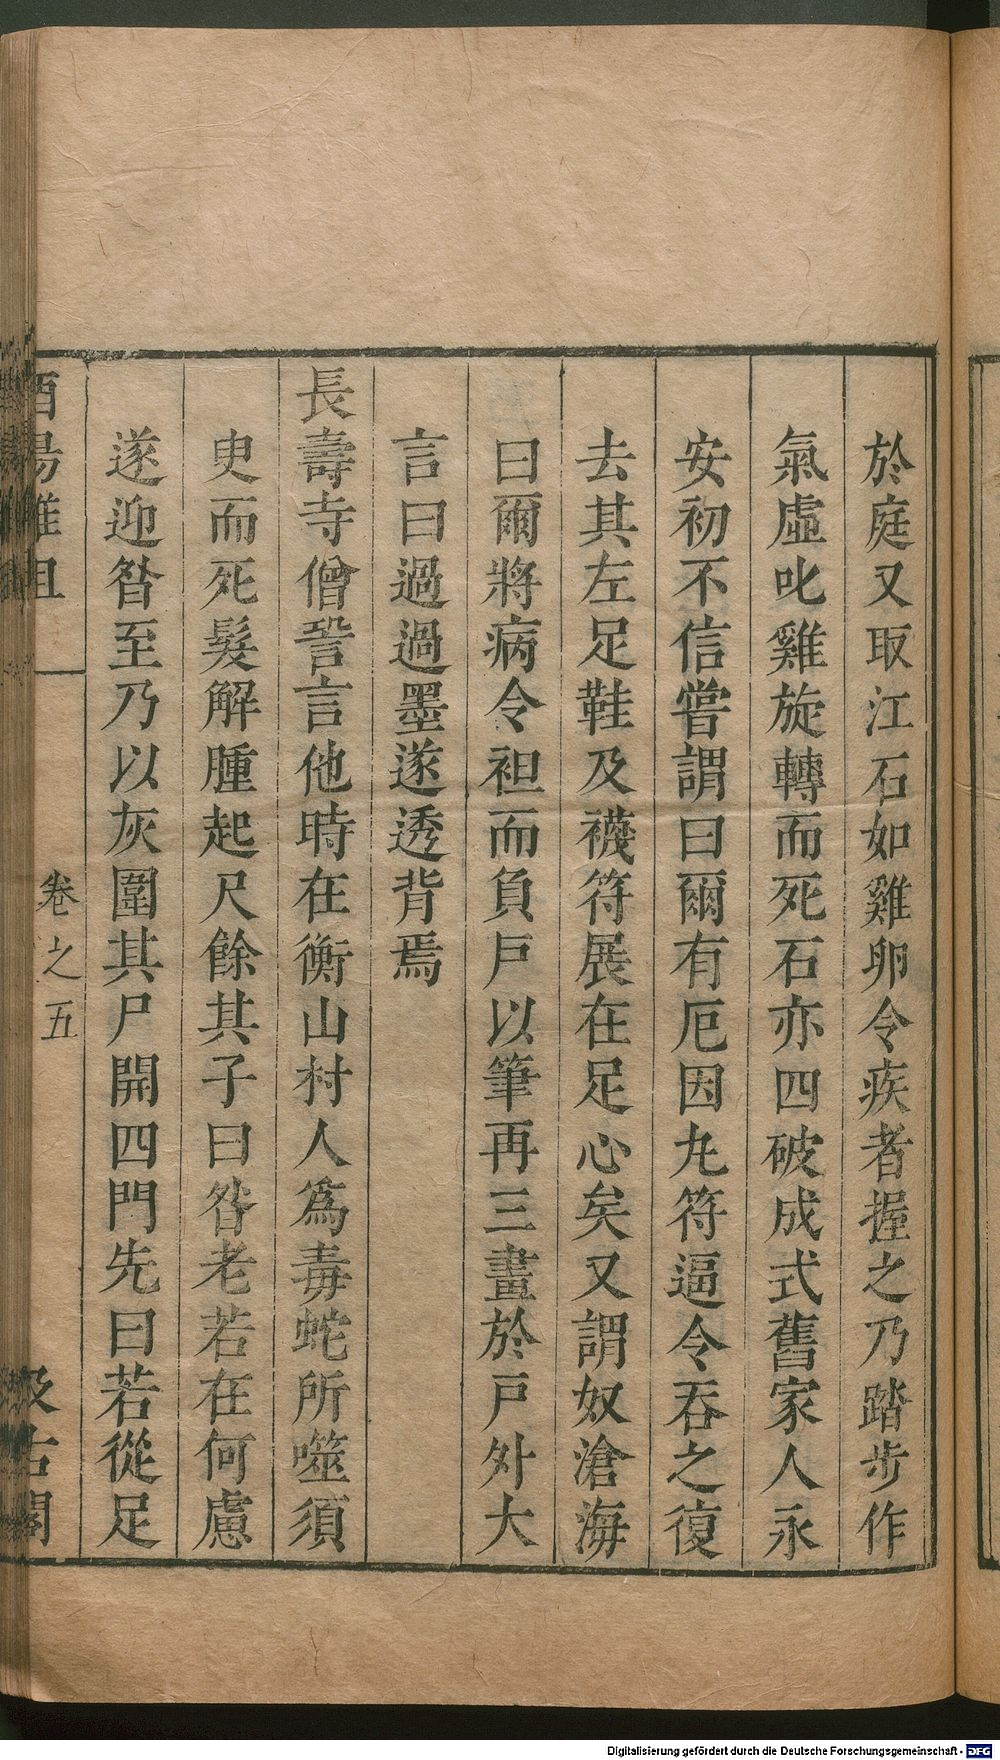 於庭又取江石如雞卵令疾者握之乃踏步作
氣虛叱雞旋轉而死石亦四破成式舊家人永
安初不信嘗謂曰爾有厄因丸符逼令吞之復
去其左足鞋及襪符展在足心矣又謂奴滄海
曰爾將病令袒而負戸以筆再三畫於戸外大
言曰過過墨遂透背焉
長壽寺僧䛒言他時在衡山村人爲毒蛇所噬須
臾而死髮解腫起尺餘其子曰昝老若在何慮
遂迎昝至乃以灰圍其尸開四門先曰若從足
酉陽雜俎
卷之五
汲古閣
Digitalisierung gefördert durch die Deutsche Forschungsgemeinschaft - DFG